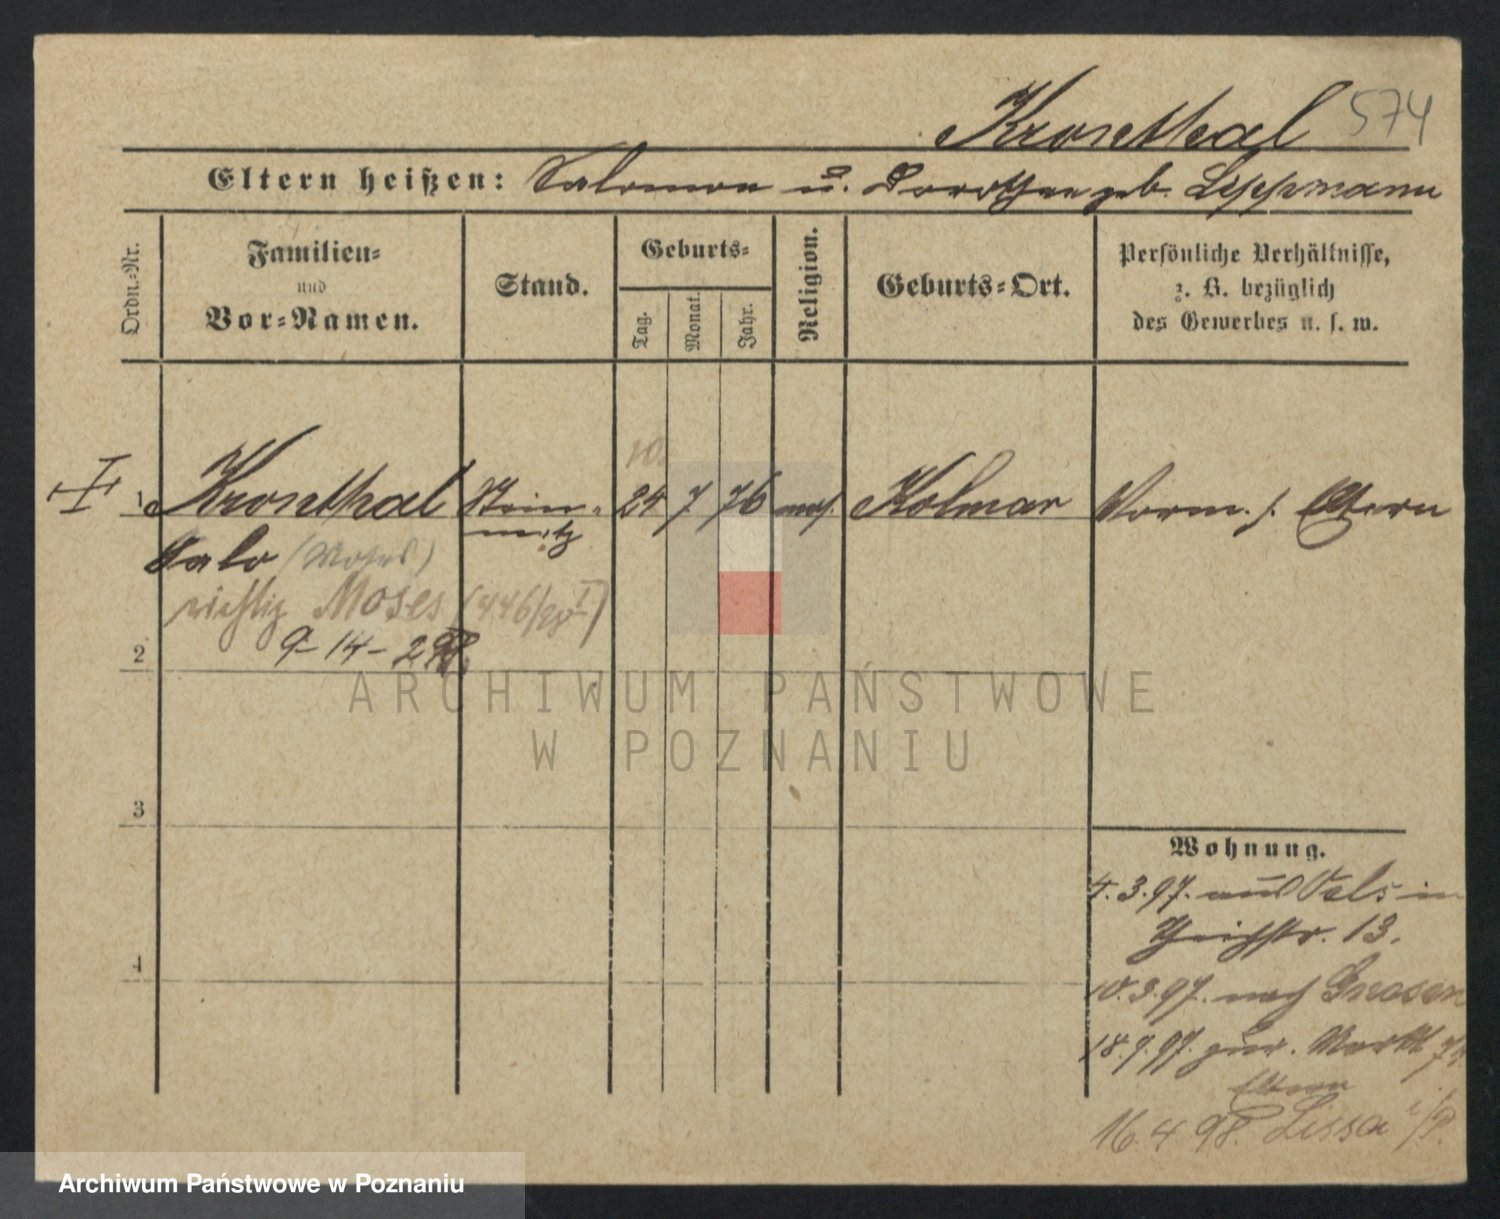 Kronthal 574
Eltern heißen: Salomon u. Dorothea geb. Lippmann
Ordn.-Nr.
Familien-
und
Vor-Namen.
Stand.
Geburts-
Tag.
Monat.
Jahr.
Religion.
Geburts-Ort.
Persönliche Verhältnisse,
z. B. bezüglich
des Gewerbes u. s. w.
10.
1 Kronthal Stein- 24 7 76 mos. Kolmar Vorm. s. Eltern
metz
Salo (Moses)
richtig Moses (446/ I)
9-14-2
2
ARCHIWUM PAŃSTWOWE
W POZNANIU
3
Wohnung.
4.3.97. aus Oels in
Teichstr. 13.
4
10.3.97. nach Gnesen
18.9.97. zur. Markt
Eltern
16.4.98. Lissa i/P.
Archiwum Państwowe w Poznaniu